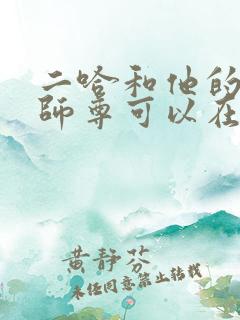 二哈和他的
師尊可以在
黄靜芬
未经同意禁止转载